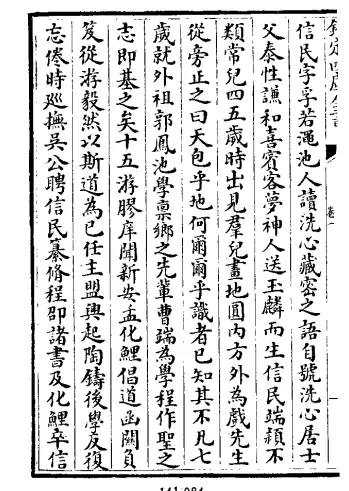 欽定四庫全書
卷一
信民字孚若澠池人讀洗心藏密之語自號洗心居士
父泰性謙和喜賓客夢神人送玉麟而生信民端穎不
類常兒四五歲時出見羣兒畫地圓内方外為戲先生
從旁正之曰天包乎地何爾爾乎識者已知其不凡七
歲就外祖郭鳳池學稟鄉之先輩曹瑞為學程作聖之
志即基之矣十五游膠庠聞新安孟化鯉倡道函關負
笈從游毅然以斯道為已任主盟興起陶鑄後學反復
忘倦時廵撫吳公聘信民纂脩程邵諸書及化鯉卒信
141-084